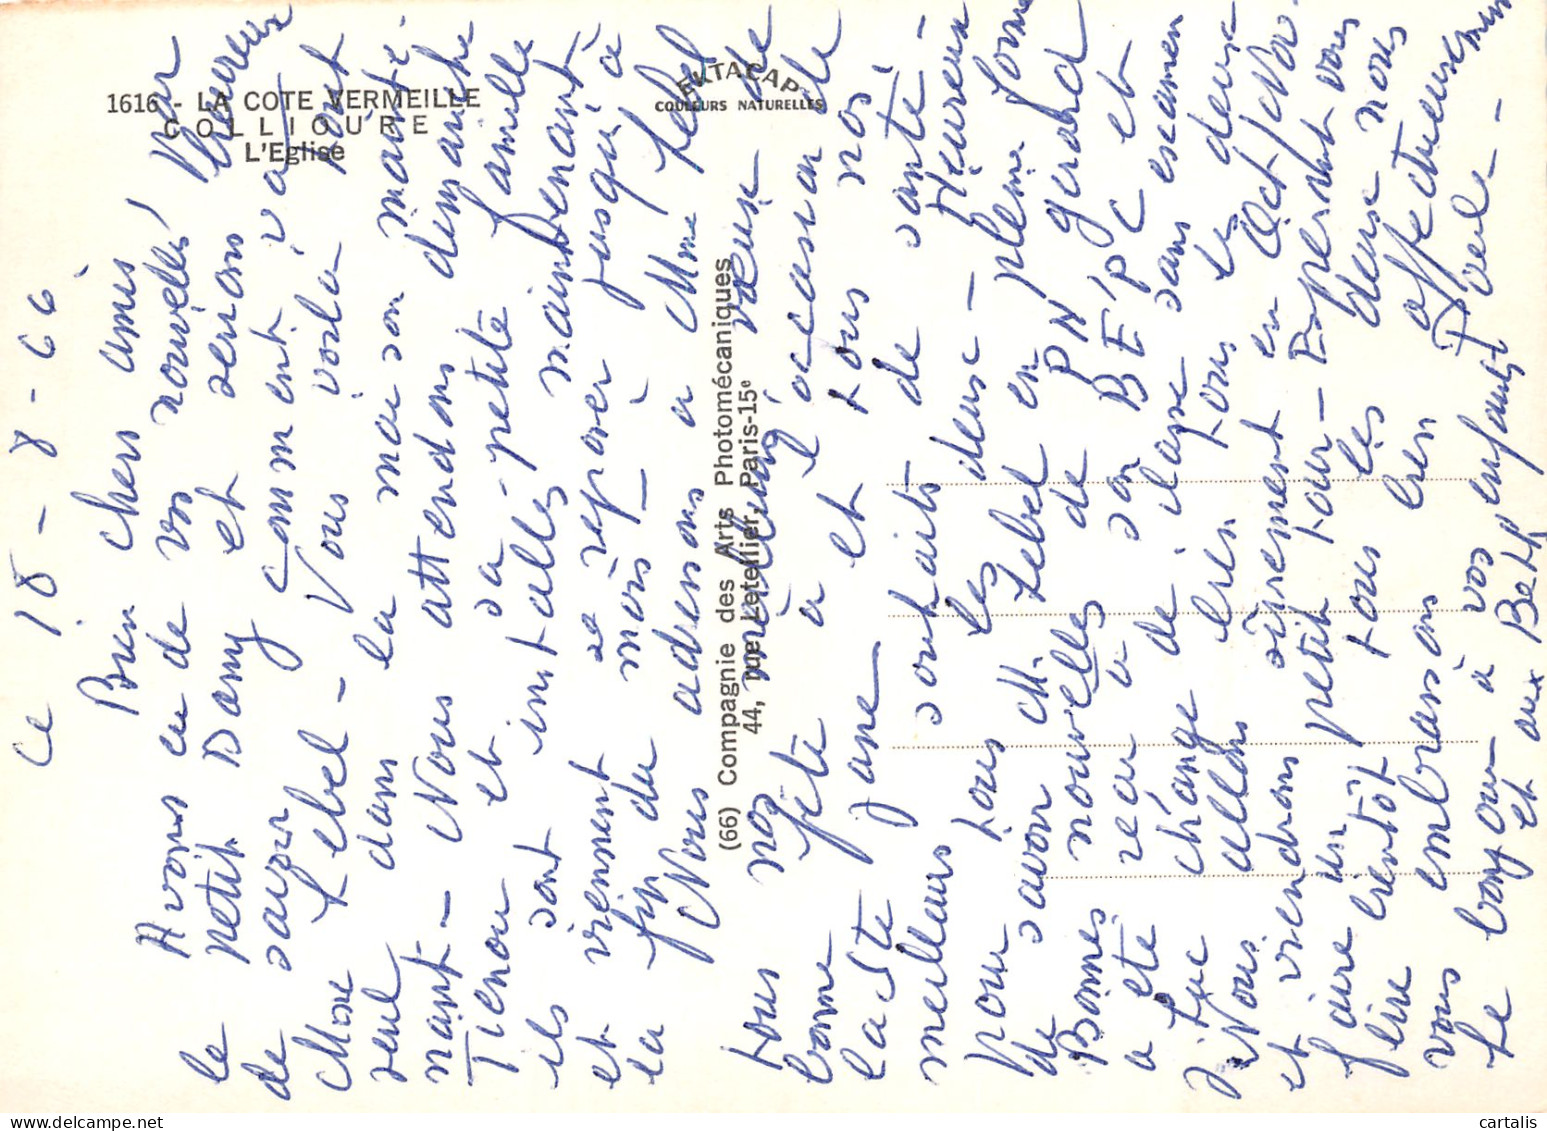 1616 - LA COTE VERMEILLE
COLLIOURE
L'Eglise
EKTACAP
COULEURS NATURELLES
(66) Compagnie des Arts Photomécaniques
44, rue Letellier, Paris-15e
Ce 18-8-66
Bien chers amis,
Avons eu de vos nouvelles par
le petit Damy et serions heureux
de savoir comment va
Mme Lebel - Vous voilà
seul dans la maison
nant - Nous attendons dimanche
Tienou et sa petite famille
ils sont installés maintenant
et viennent se reposer jusqu'à
la fin du mois -
Nous adressons à Mme Lebel
tous nos meilleurs vœux de
bonne fête à l'occasion de
la Ste Jane et tous nos
meilleurs souhaits de santé -
pour tous les deux - Heureux
de savoir M. Lebel en pleine forme
Bonnes nouvelles de PN Gérard
a été reçu à son BEPC et
Luc change de classe sans examen
Nous allons bien tous les deux
et viendrons sûrement en Oct/Nov.
faire un petit tour - Espérant vous
lire bientôt tous les deux nous
vous embrassons bien affectueusement
Le bonjour à vos enfants
et aux Beth